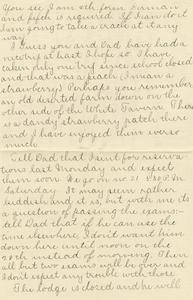 You see I am 4th form German
and fifth is required. If I can do it
I am going to take a crack at it any
way.
I guess you and Dad have had a
novelty at East I hope so. I have
taken only one trip since school closed
and that was a peach (I mean a
strawberry) Perhaps you remember
an old deserted farm down on the
other side of the White Tavern. There
is a dandy strawberry patch there
and I have enjoyed them ever so
much.
Tell Dad that I sent for reserva
tions last Monday and expect
them soon. So go on no. 31 - 2.30 P.M.
Saturday. It may seem rather
kiddish and it is, but with me its
a question of passing the exams.
tell Dad that if he can use the
time elsewhere I don't want him
down here until noon on the
20th instead of morning. Then
all but two exams will be over and
I don't expect any trouble with those
The lodge is closed and he will